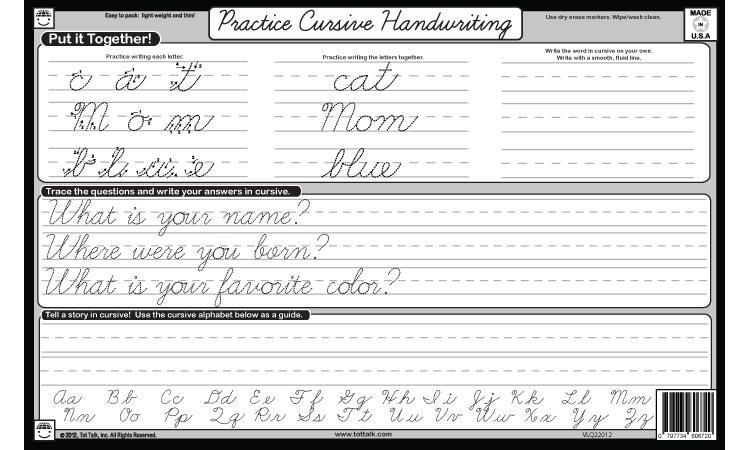 Easy to pack: light weight and thin!
Practice Cursive Handwriting
Use dry erase markers. Wipe/wash clean.
MADE
IN
U.S.A
Put it Together!
Practice writing each letter.
Practice writing the letters together.
Write the word in cursive on your own.
Write with a smooth, fluid line.
c a t
cat
M o m
Mom
b l u e
blue
Trace the questions and write your answers in cursive.
What is your name?
Where were you born?
What is your favorite color?
Tell a story in cursive! Use the cursive alphabet below as a guide.
Aa Bb Cc Dd Ee Ff Gg Hh Ii Jj Kk Ll Mm
Nn Oo Pp Qq Rr Ss Tt Uu Vv Ww Xx Yy Zz
©2012, Tot Talk, Inc. All Rights Reserved.
www.tottalk.com
VLQ22012
0 797734 606720